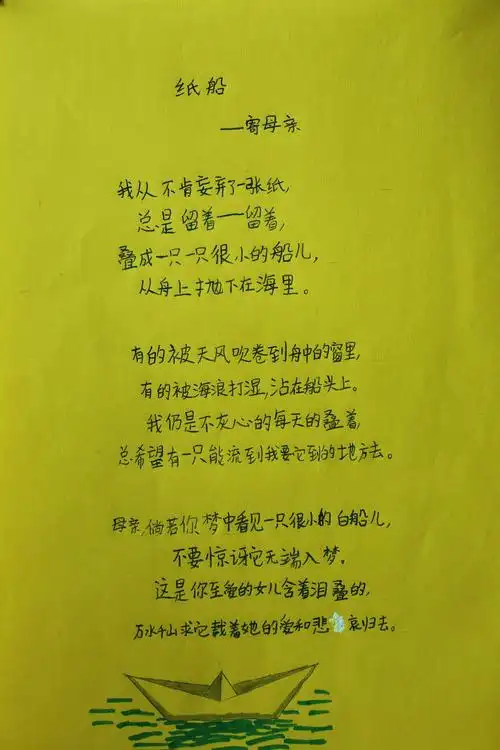 纸船
——寄母亲
我从不肯妄弃了一张纸,
总是留着——留着,
叠成一只一只很小的船儿,
从舟上抛下在海里。
有的被天风吹卷到舟中的窗里,
有的被海浪打湿,沾在船头上。
我仍是不灰心的每天的叠着,
总希望有一只能流到我要它到的地方去。
母亲,倘若你梦中看见一只很小的白船儿,
不要惊讶它无端入梦。
这是你至爱的女儿含着泪叠的,
万水千山求它载着她的爱和悲哀归去。